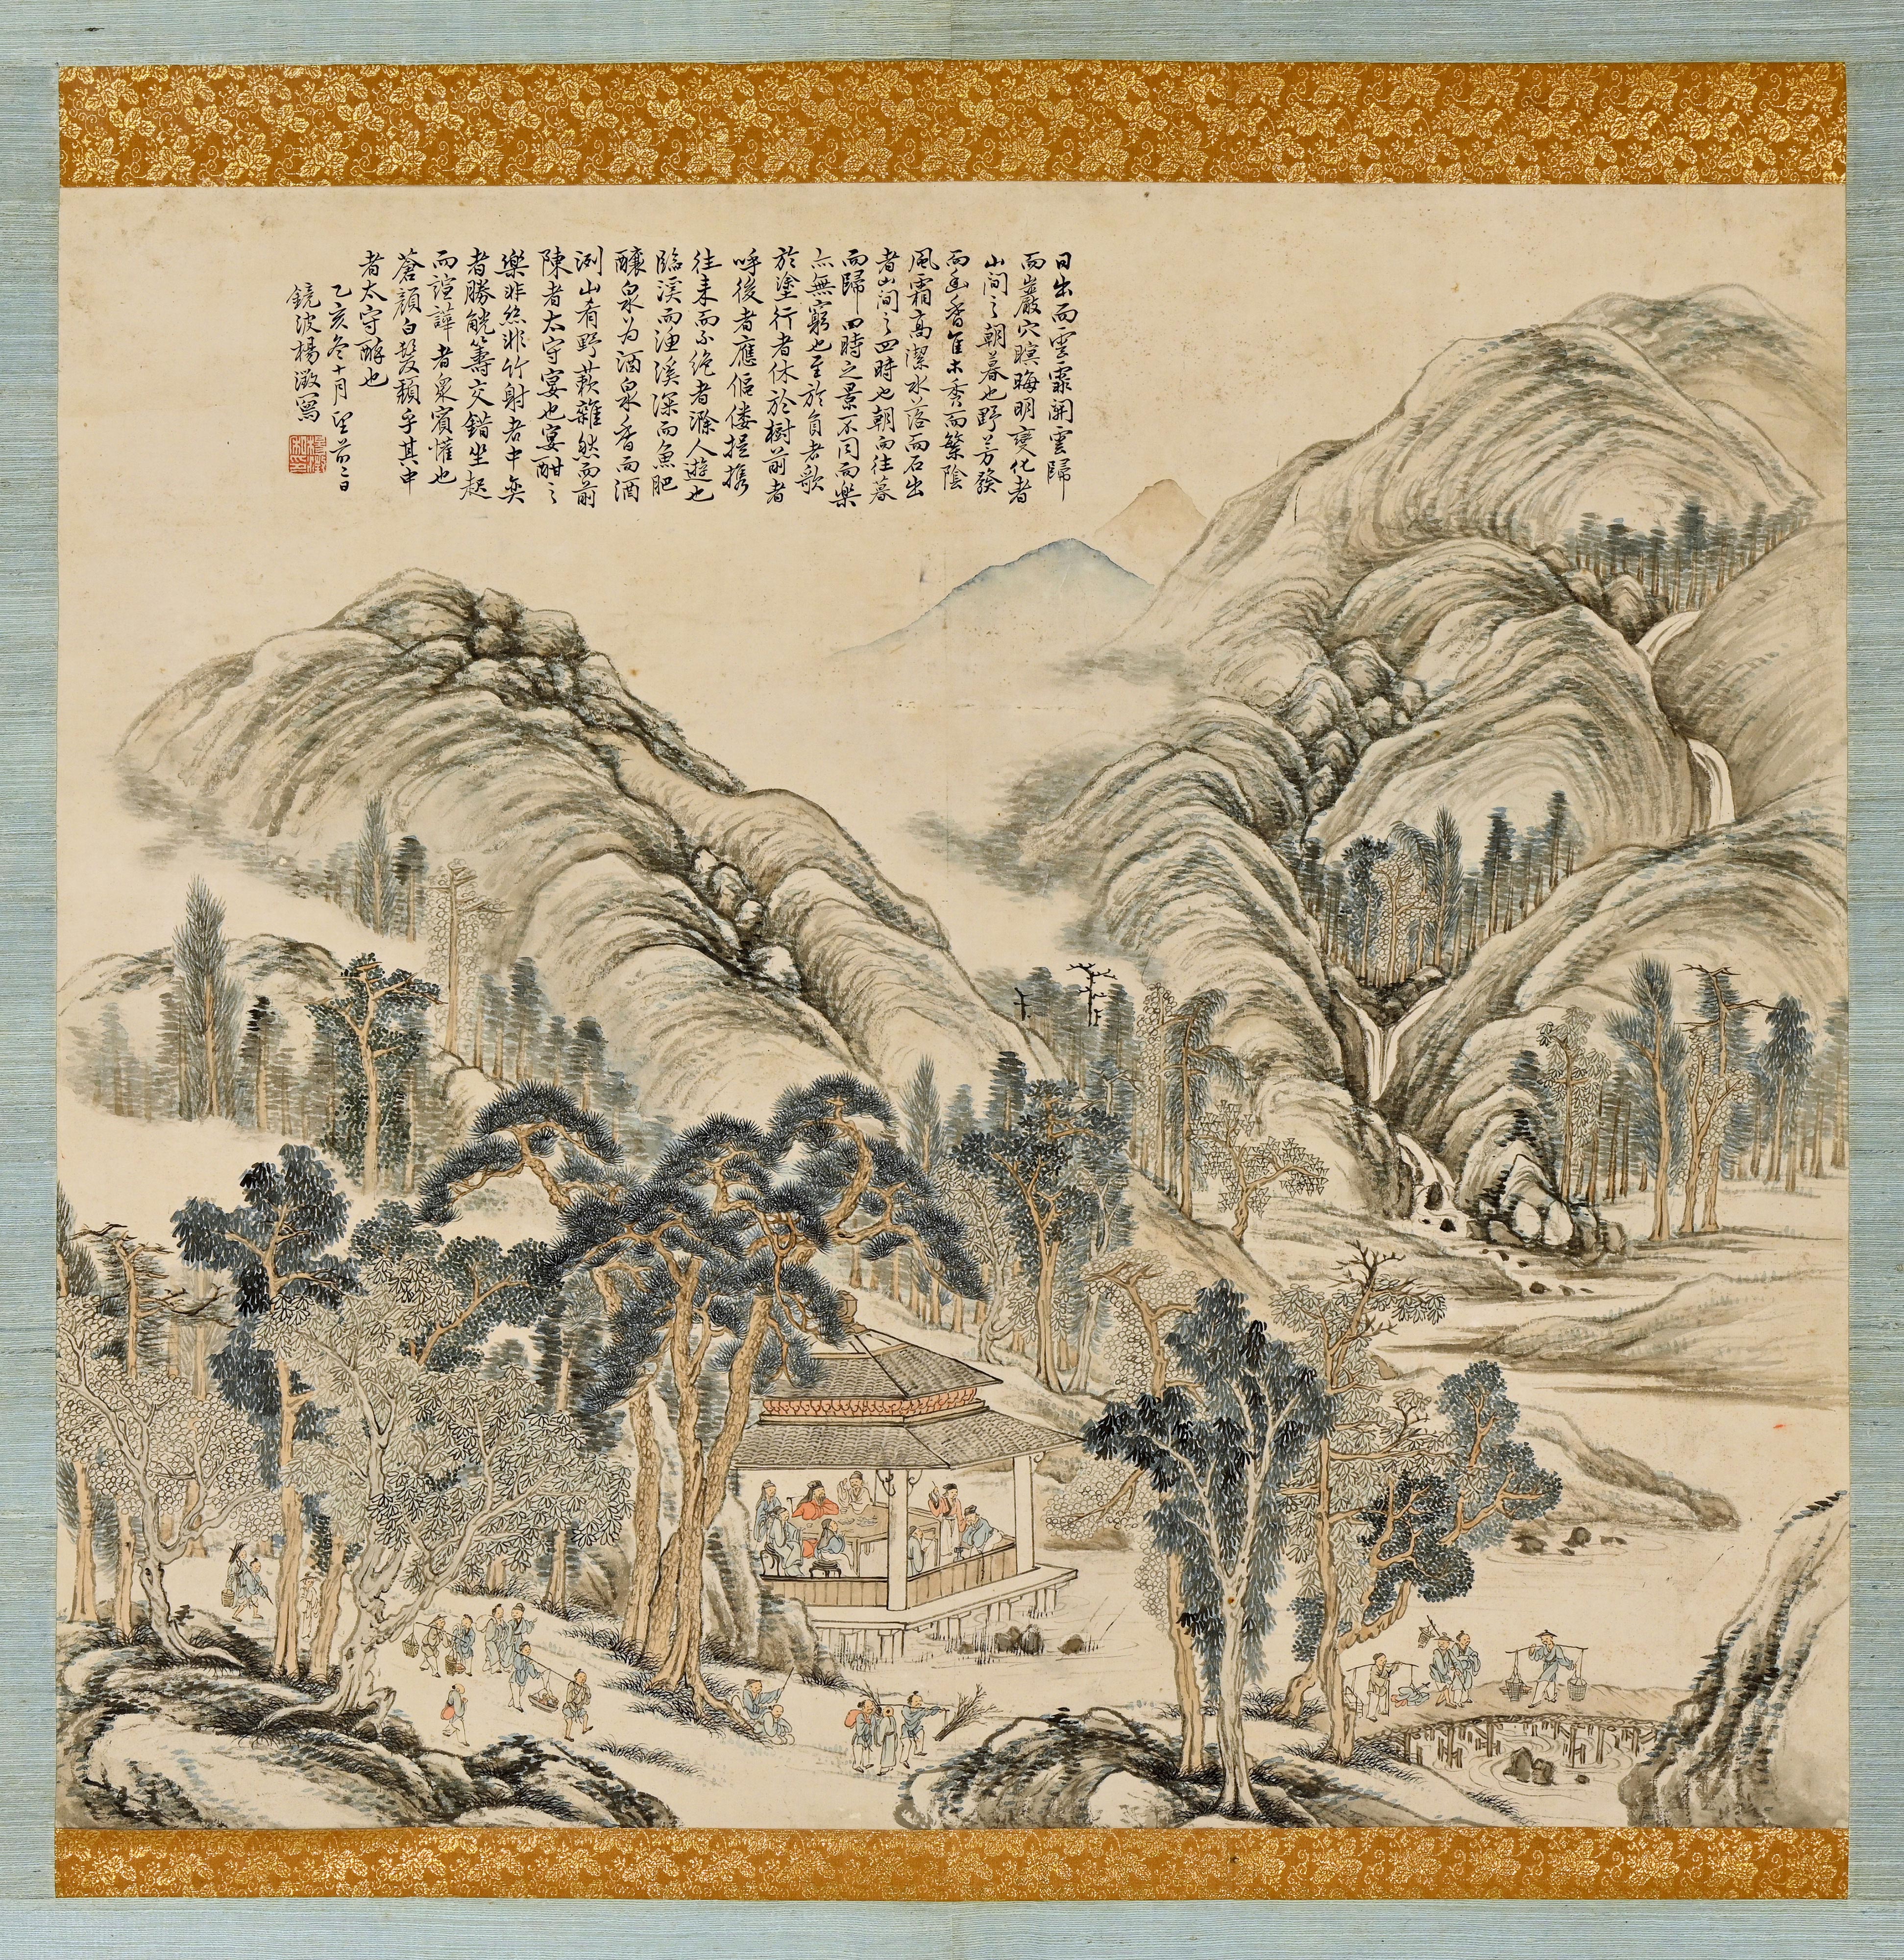 日出而雲霏開雲歸
而巖穴暝晦明變化者
山間之朝暮也野芳發
而幽香佳木秀而繁陰
風霜高潔水落而石出
者山間之四時也朝而往暮
而歸四時之景不同而樂
亦無窮也至於負者歌
於塗行者休於樹前者
呼後者應傴僂提攜
往来而不絶者滁人遊也
臨溪而漁溪深而魚肥
釀泉为酒泉香而酒
洌山肴野蔌雜然而前
陳者太守宴也宴酣之
樂非絲非竹射者中奕
者勝觥籌交錯坐起
而諠譁者衆賓懽也
蒼顔白髮頽乎其中
者太守醉也
乙亥冬十月望前二日
鏡波楊澂寫
楊澂私印